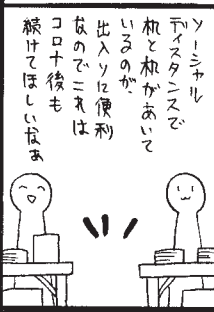 ソーシャル
ディスタンスで
机と机があいて
いるのが、
出入りに便利
なのでこれは
コロナ後も
続けてほしいなぁ